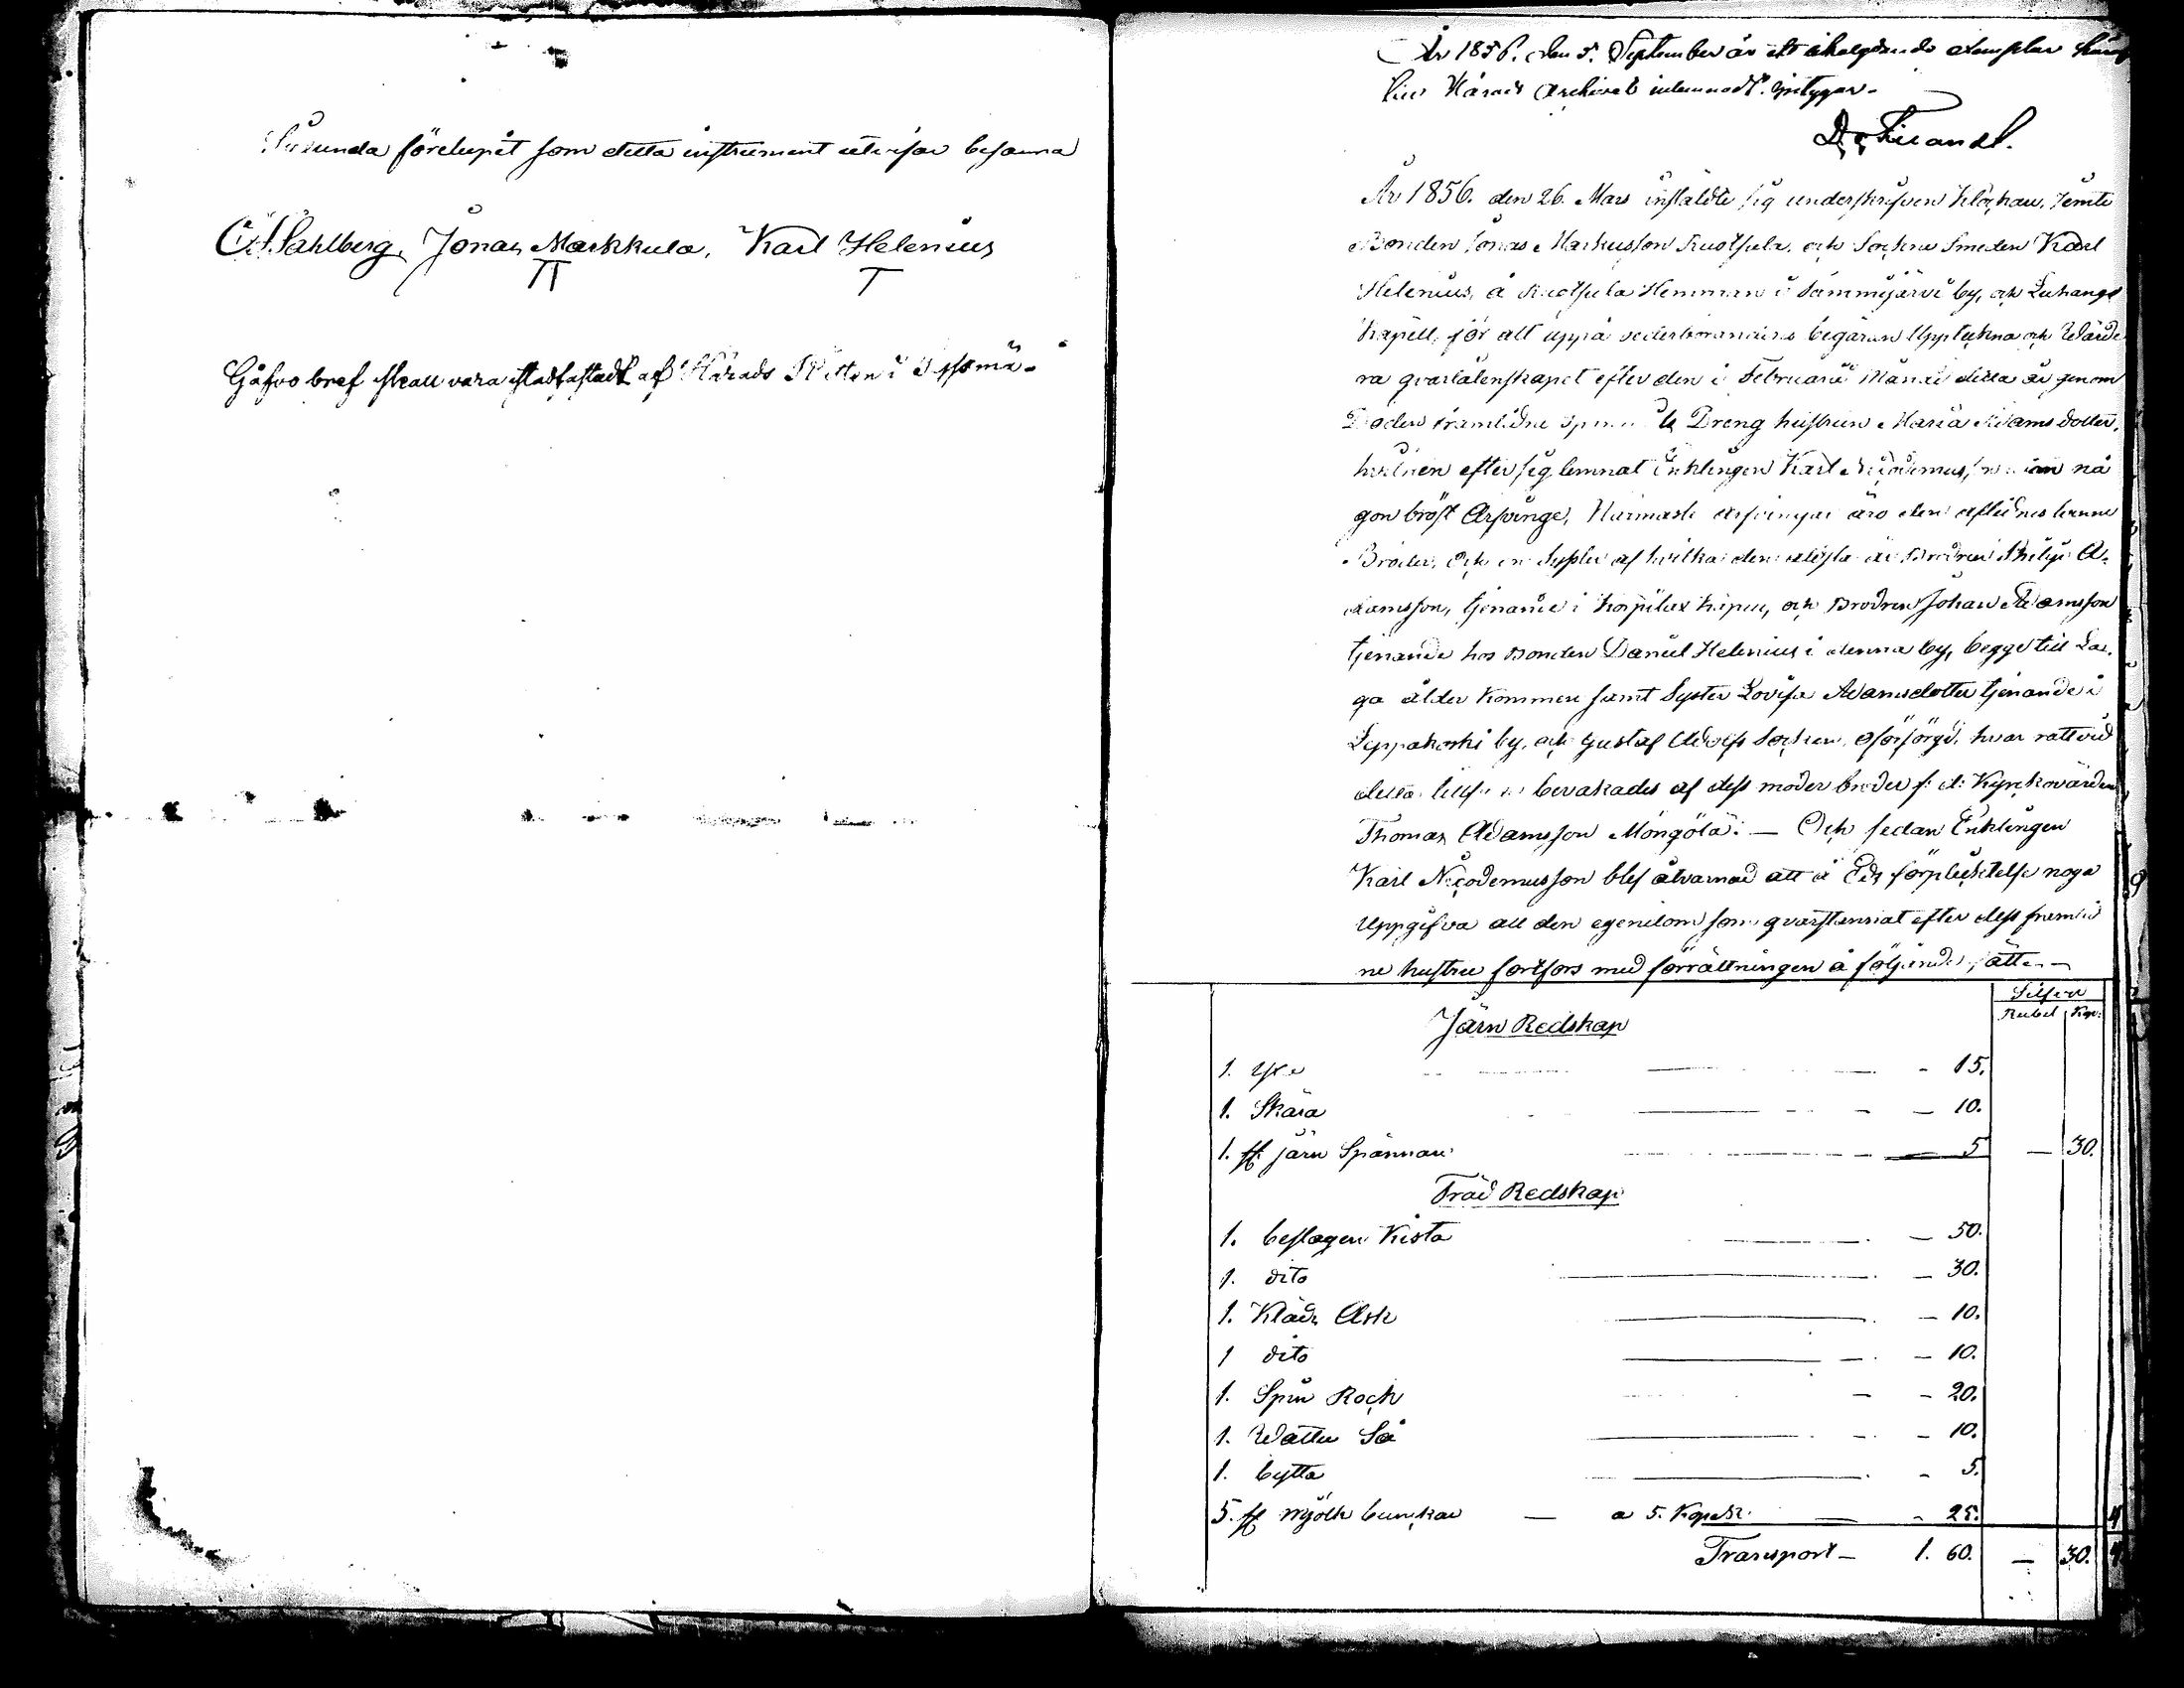 Sålunda förelupit som detta instrument utvisar besanna
C A Sahlberg, Jonas Markkula, Karl Helenius
Gåfvo bref skall vara stadfästadt af Härads Rätten i
År 1856. den 5. September är ett exemplar
Härads Archivet inlemnadt. intygar.
År 1856. den 26. Mars instäldte sig underskrifven Klockare, jemte
Bonden Jonas Markusson Ruotsula, och Sockne Smeden Karl
Helenius, å Ruotsula Hemman i Tammijärvi by, och Luhango
Kapell, för att uppå vederbörandens begäran Uppteckna och Wärde
ra qvarlåtenskapet efter den i Februarii Månad detta år genom
Döden framlidne Dreng hustrun Maria Adamsdotter,
hvilken efter sig lemnat Enklingen Karl Nicodemusson nå
gon bröst Arfvinge, Närmaste arfvingar äro den aflidnes tvenne
Bröder, Och en Syster af hvilka den älsta är Brodren Philip A-
damsson, tjenande i och Brodren Johan Adamsson
tjenande hos Bonden Daniel Helenius i denna by, begge till La-
ga ålder Kommen samt Syster Lovisa Adamsdotter tjenande i
Leppäkoski by, och Gustaf Adolfs Socken, Oförsörgd, hvars rätt vid
detta bevakades af dess moder broder f: d: Kyrckovärden
Thomas Adamsson Möngölä: — Och sedan Enklingen
Karl Nicodemusson blef åtvarnad att å Eds förplicktelse noga
Uppgifva all den egendom som qvarstannat efter dess framlid
ne hustru fortfors med förrättningen å följande sätt. —
Silfver
Rubel Kop:
Järn Redskap
1. yxe — 15.
1. Skära — 10.
1. st järn Spännare — 5 — 30.
Träd Redskap
1. beslagen Kista — 50.
1. dito — 30.
1. Kläds Ask — 10.
1 dito — 10.
1. Spin Rock — 20.
1. Watten Så — 10.
1. bytta — 5.
5. st mjölk bunckar — a 5. Kopek: — 25.
Transport — 1. 60. — 30.